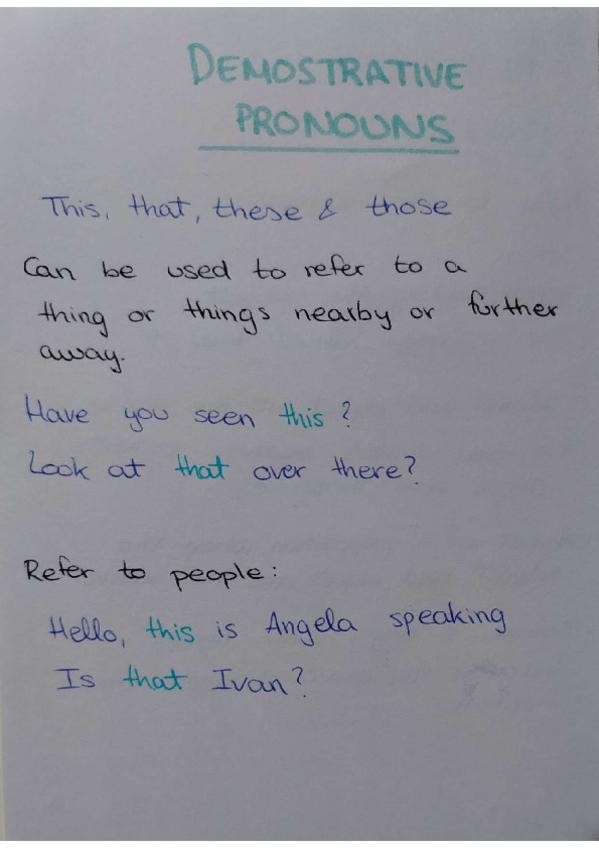 DEMOSTRATIVE
PRONOUNS
This, that, these & those
Can be used to refer to a
thing or things nearby or further
away.
Have you seen this?
Look at that over there?
Refer to people:
Hello, this is Angela speaking
Is that Ivan?